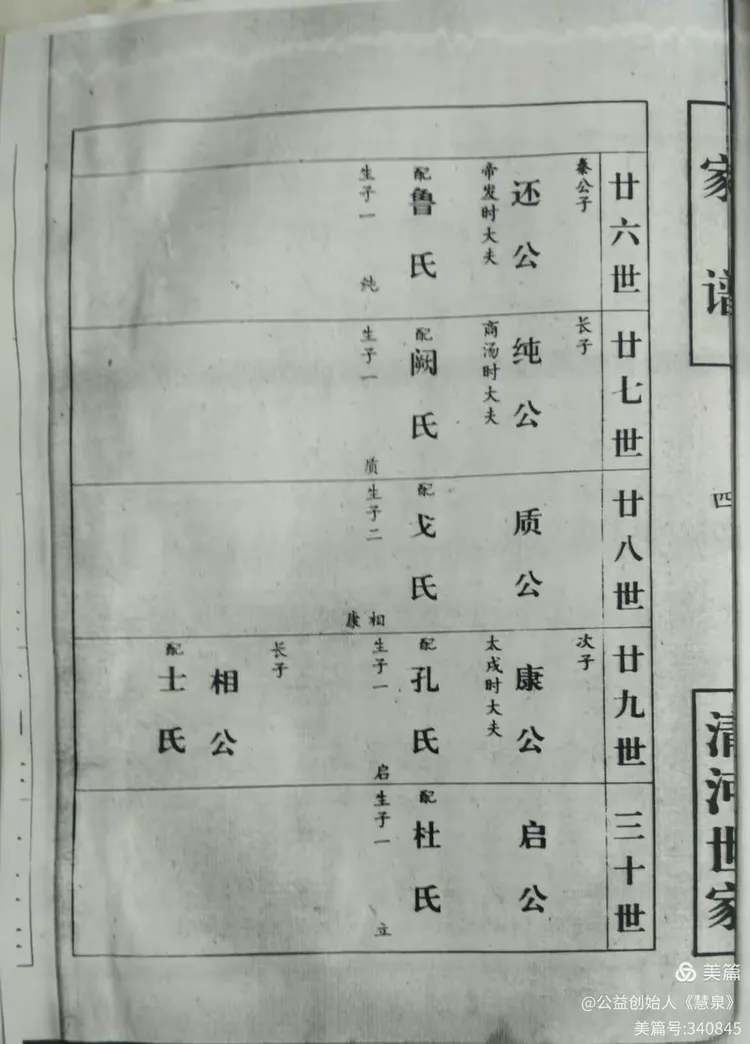 家谱
四
清河世家
廿六世
秦公子
还公
帝发时大夫
配鲁氏
生子一 纯
廿七世
长子
纯公
商汤时大夫
配阙氏
生子一 质
廿八世
质公
配戈氏
生子二 相 康
廿九世
次子
康公
太戊时大夫
配孔氏
生子一 启
长子
相公
配士氏
三十世
启公
配杜氏
生子一 立
美篇
@公益创始人《慧泉》
美篇号:340845